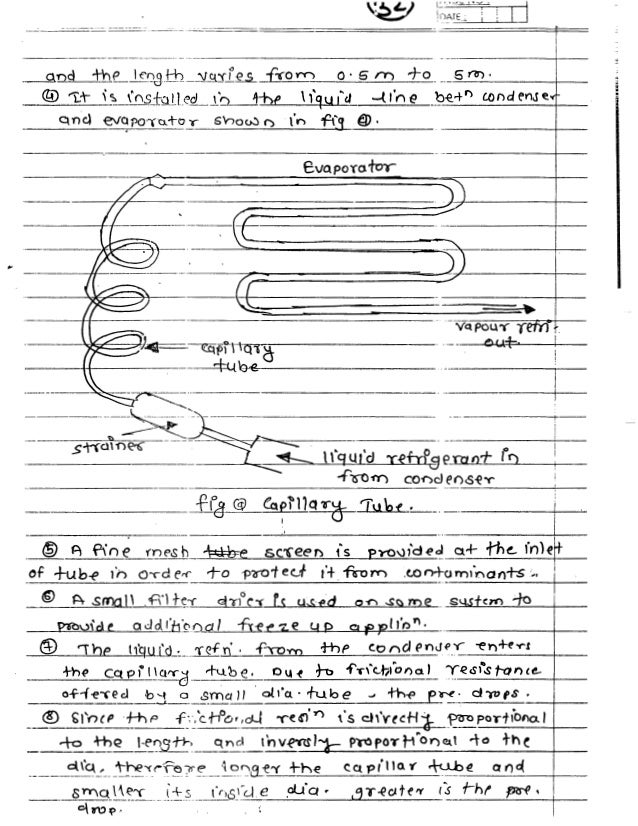 32
DATE
and the length varies from 0.5m to 5m.
④ It is installed in the liquid line betn condenser
and evaporator shown in fig ⓐ.
Evaporator
vapour refri.
out.
capillary
tube
strainer
liquid refrigerant in
from condenser
fig ⓐ Capillary Tube.
⑤ A fine mesh tube screen is provided at the inlet
of tube in order to protect it from contaminants.
⑥ A small filter drier is used on some system to
provide additional freeze up applin.
⑦ The liquid. refn. from the condenser enters
the capillary tube. Due to frictional resistance
offered by a small dia. tube, the pre. drops.
⑧ Since the frictional resin is directly proportional
to the length and inversly proportional to the
dia. therefore longer the capillar tube and
smaller its inside dia. greater is the pre.
drop.